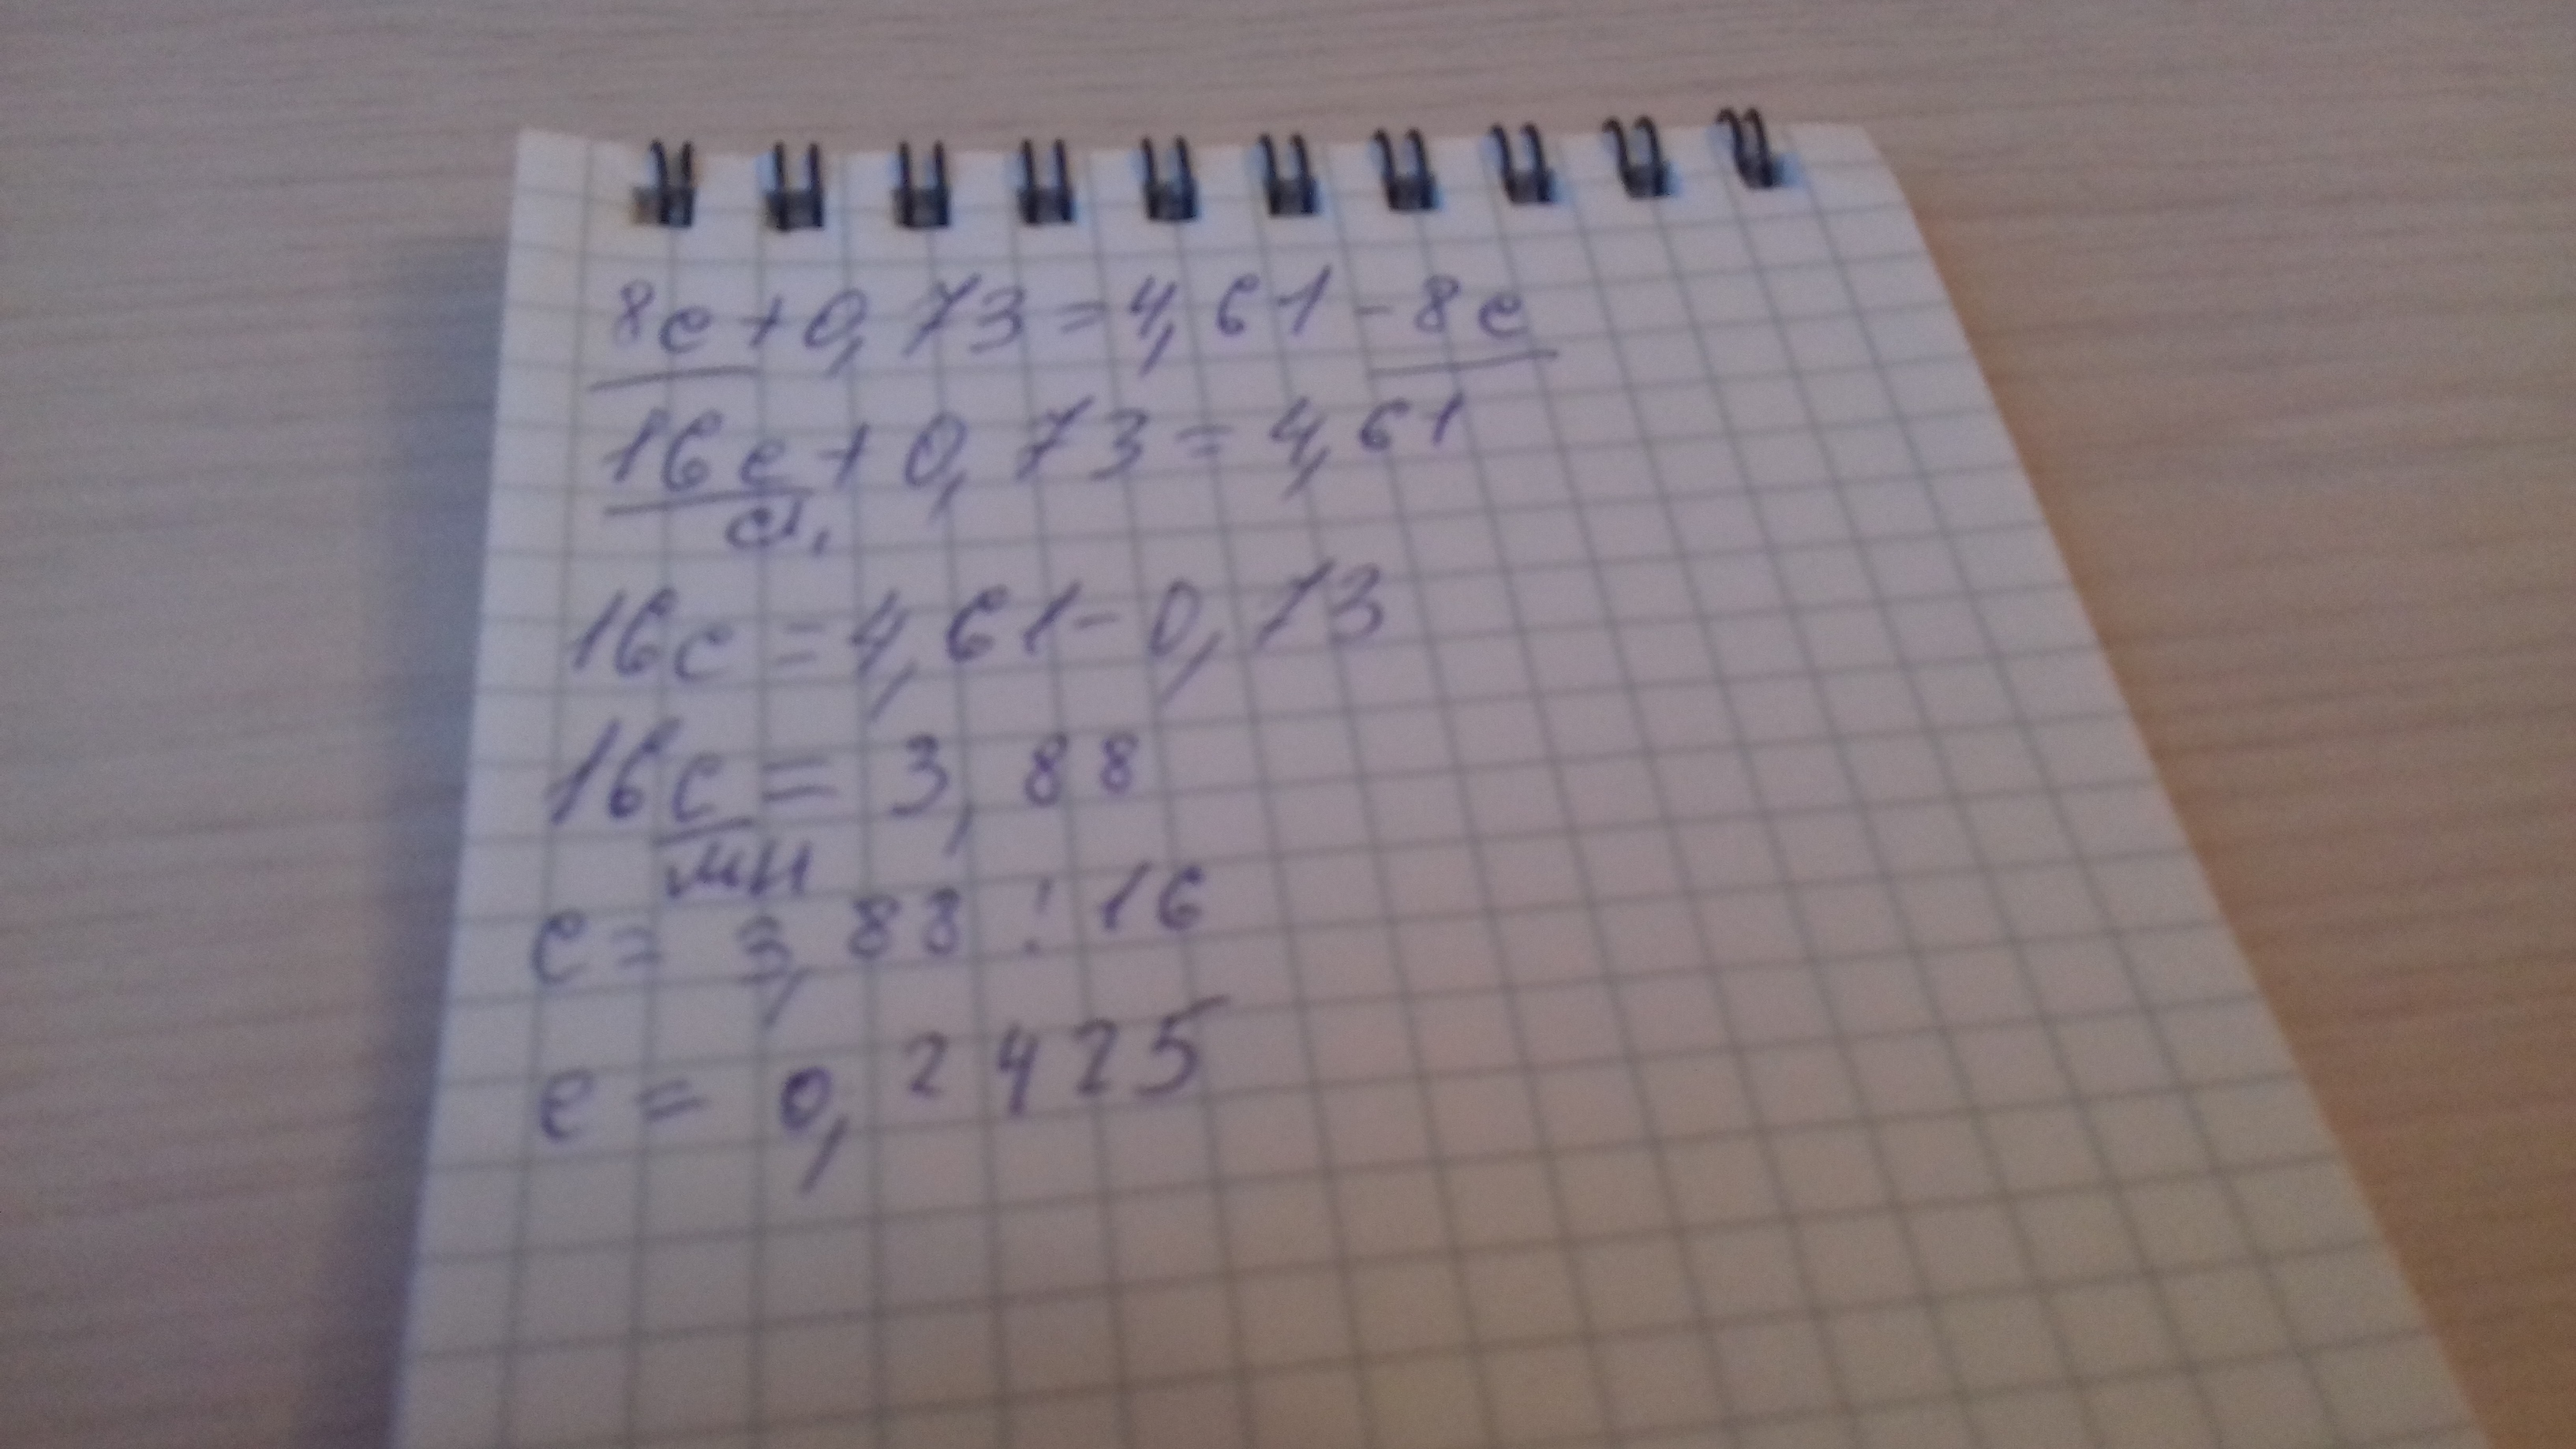 8e+0,73=4,61-8e
16e+0,73=4,61
сл.
16e=4,61-0,73
16e=3,88
мн
e=3,88:16
e=0,2425